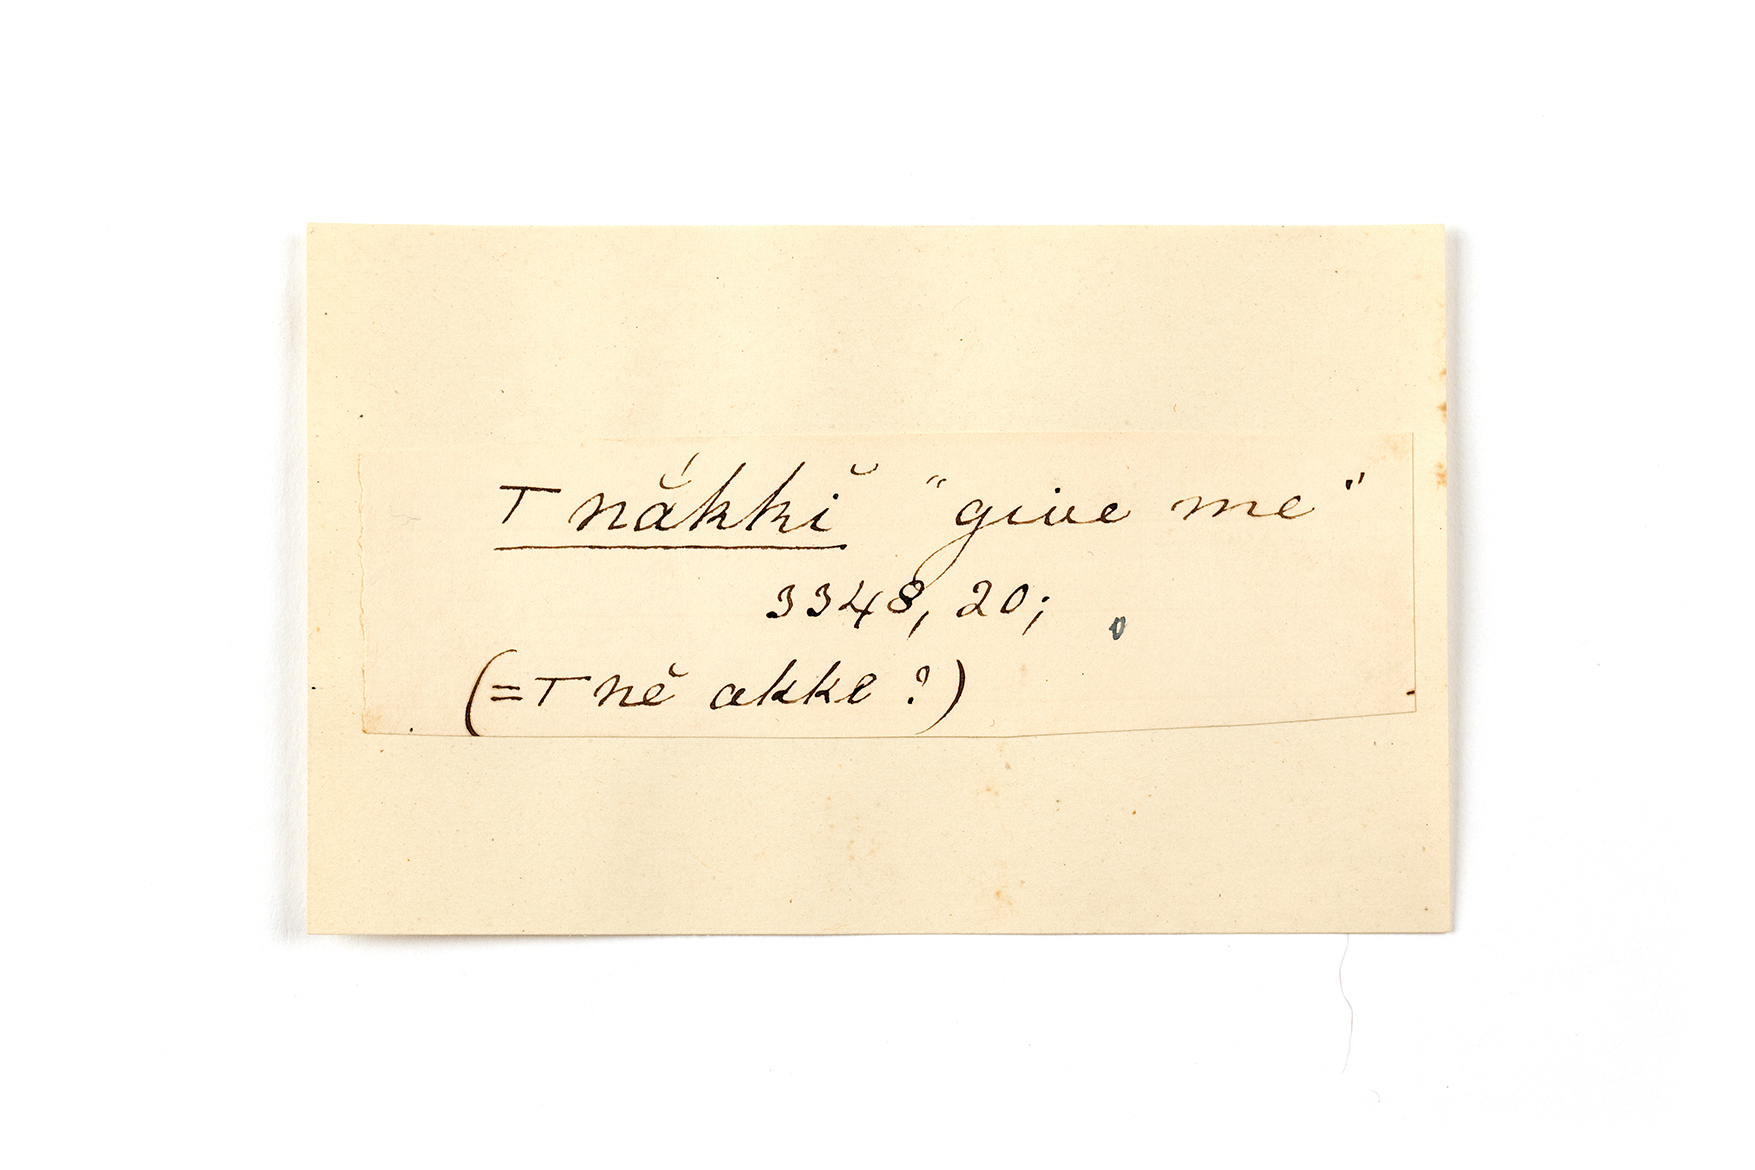 ⊤nắkkĭ "give me"
3348, 20;
(=⊤nĕ akke ?)